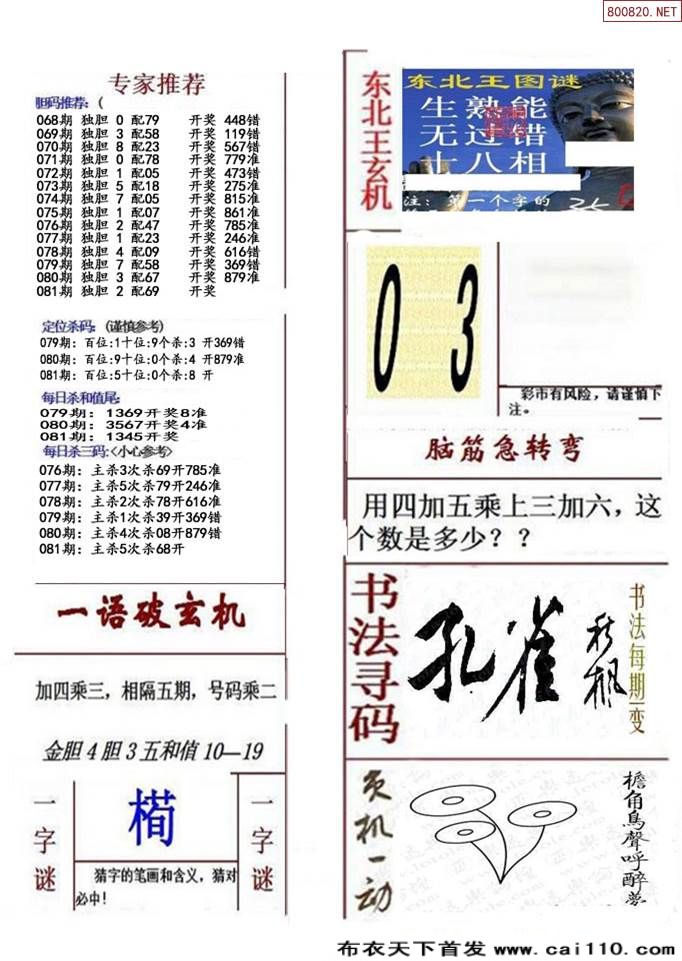 800820.NET
专家推荐
胆码推荐：（
068期 独胆 0 配79 开奖 448错
069期 独胆 3 配58 开奖 119错
070期 独胆 8 配23 开奖 567错
071期 独胆 0 配78 开奖 779准
072期 独胆 1 配05 开奖 473错
073期 独胆 5 配18 开奖 275准
074期 独胆 7 配05 开奖 815准
075期 独胆 1 配07 开奖 861准
076期 独胆 2 配47 开奖 785准
077期 独胆 1 配23 开奖 246准
078期 独胆 4 配09 开奖 616错
079期 独胆 7 配58 开奖 369错
080期 独胆 3 配67 开奖 879准
081期 独胆 2 配69 开奖
定位杀码：（谨慎参考）
079期：百位:1十位:9个杀:3 开369错
080期：百位:9十位:0个杀:4 开879准
081期：百位:5十位:0个杀:8 开
每日杀和值尾：
079期：1369开奖8准
080期：3567开奖4准
081期：1345开奖
每日杀三码:<小心参考>
076期：主杀3次杀69开785准
077期：主杀5次杀79开246准
078期：主杀2次杀78开616准
079期：主杀1次杀39开369错
080期：主杀4次杀08开879错
081期：主杀5次杀68开
一语破玄机
加四乘三，相隔五期，号码乘二
金胆4胆3五和值10—19
一字谜
椅
一字谜
猜字的笔画和含义，猜对必中！
东北王玄机
东北王图谜
生熟能
无过错
十八相
注：第一个字的
03
彩市有风险，请谨慎下
注。
脑筋急转弯
用四加五乘上三加六，这
个数是多少？？
书法寻码
孔雀
秋枫
书法每期一变
灵机一动
檐角鳥聲呼醉夢
布衣天下首发 www.cai110.com